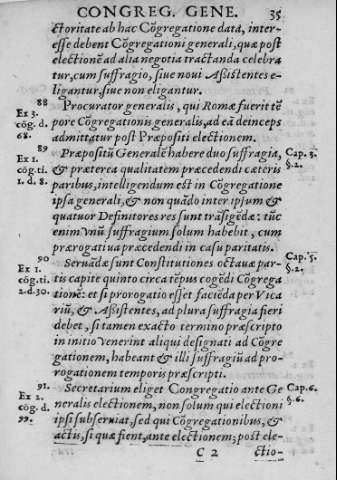 CONGREG. GENE. 35
ctoritate ab hac Cōgregatione datá, inter-
esse debent Cōgregationi generali, quæ post
electionē ad alia negotia tractanda celebra
tur, cum suffragio, siue noui Assistentes e-
ligantur, siue non eligantur.
88
Ex 3.
cōg. d.
68.
Procurator generalis, qui Romæ fuerit tē
pore Cōgregationis generalis, ad eā deinceps
admittatur post Præpositi electionem.
89
Ex 1.
cōg. ti.
1. d. 8.
Præpositū Generalē habere duo suffragia,
& præterea qualitatem præcedendi cæteris
paribus, intelligendum est in Cōgregatione
ipsa generali, & non quādo inter ipsum &
quatuor Definitores res sunt trāsigēdæ: tūc
enim vnū suffragium solum habebit, cum
prærogatiua præcedendi in casu paritatis.
Cap. 3.
§. 2.
90
Ex 1.
cōg. ti.
2. d. 30.
Seruādæ sunt Constitutiones octauæ par-
tis capite quinto circa tēpus cogēdi Cōgrega
tionē: et si prorogatio esset faciēda per Vica
riū, & Assistentes, ad plura suffragia fieri
debet, si tamen exacto termino præscripto
in initio venerint aliqui designati ad Cōgre
gationem, habeant & illi suffragiū ad pro-
rogationem temporis præscripti.
Cap. 5.
§. 2.
91.
Ex 2.
cōg. d.
99.
Secretarium eliget Congregatio ante Ge
neralis electionem, non solum qui electioni
ipsi subseruiat, sed qui Cōgregationibus, &
actis, si quæ fient, ante electionem; post ele-
Cap. 6.
§. 6.
C 2 ctio-